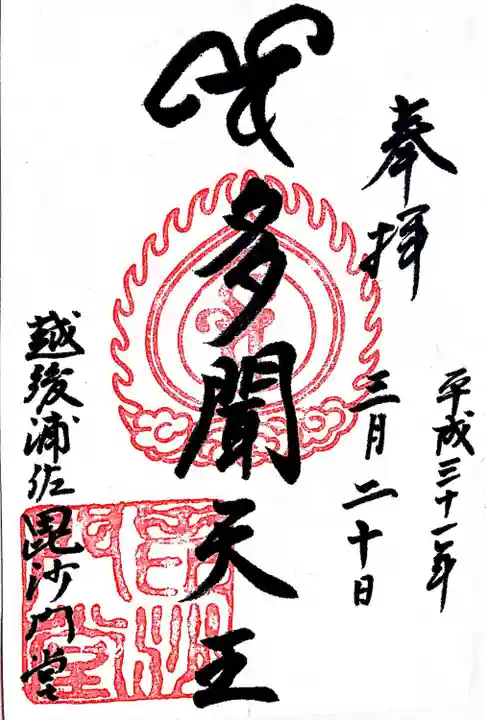 奉拝
平成三十一年
三月二十日
多聞天王
越後浦佐毘沙門堂